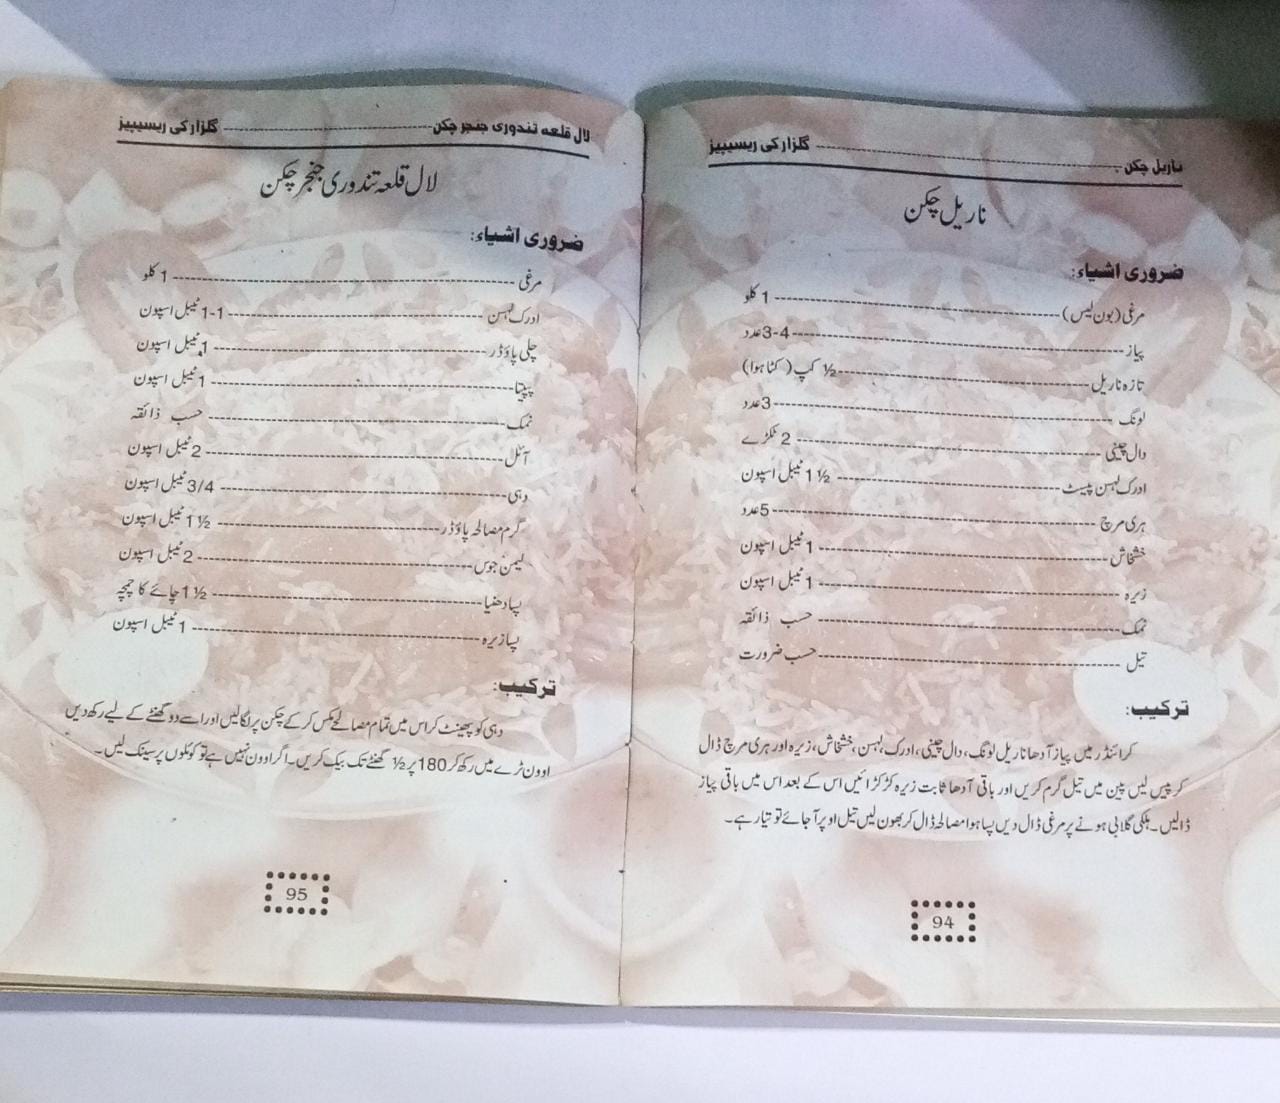 ناریل چکن ---------- گلزار کی ریسیپیز
ناریل چکن
ضروری اشیاء:
مرغی (بون لیس) ---------- 1 کلو
پیاز ---------- 3-4 عدد
تازہ ناریل ---------- ½ کپ (کٹا ہوا)
لونگ ---------- 3 عدد
دال چینی ---------- 2 ٹکڑے
ادرک لہسن پیسٹ ---------- 1 ½ ٹیبل اسپون
ہری مرچ ---------- 5 عدد
خشخاش ---------- 1 ٹیبل اسپون
زیرہ ---------- 1 ٹیبل اسپون
نمک ---------- حسب ذائقہ
تیل ---------- حسب ضرورت
ترکیب:
گرائنڈر میں پیاز آدھا ناریل لونگ، دال چینی، ادرک، لہسن، خشخاش، زیرہ اور ہری مرچ ڈال
کر پیس لیں پین میں تیل گرم کریں اور باقی آدھا ثابت زیرہ کڑکڑائیں اس کے بعد اس میں باقی پیاز
ڈالیں۔ ہلکی گلابی ہونے پر مرغی ڈال دیں پسا ہوا مصالحہ ڈال کر بھون لیں تیل اوپر آ جائے تو تیار ہے۔
94
لال قلعہ تندوری جنجر چکن ---------- گلزار کی ریسیپیز
لال قلعہ تندوری جنجر چکن
ضروری اشیاء:
مرغی ---------- 1 کلو
ادرک لہسن ---------- 1-1 ٹیبل اسپون
چلی پاؤڈر ---------- 1 ٹیبل اسپون
پپیتا ---------- 1 ٹیبل اسپون
نمک ---------- حسب ذائقہ
آئل ---------- 2 ٹیبل اسپون
دہی ---------- 3/4 ٹیبل اسپون
گرم مصالحہ پاؤڈر ---------- 1 ½ ٹیبل اسپون
لیمن جوس ---------- 2 ٹیبل اسپون
پسا دھنیا ---------- 1 ½ چائے کا چمچہ
پسا زیرہ ---------- 1 ٹیبل اسپون
ترکیب:
دہی کو پھینٹ کر اس میں تمام مصالحے مکس کر کے چکن پر لگا لیں اور اسے دو گھنٹے کے لیے رکھ دیں
اوون ٹرے میں رکھ کر 180 پر ½ گھنٹے تک بیک کریں۔ اگر اوون نہیں ہے تو کوئلوں پر سینک لیں۔
95